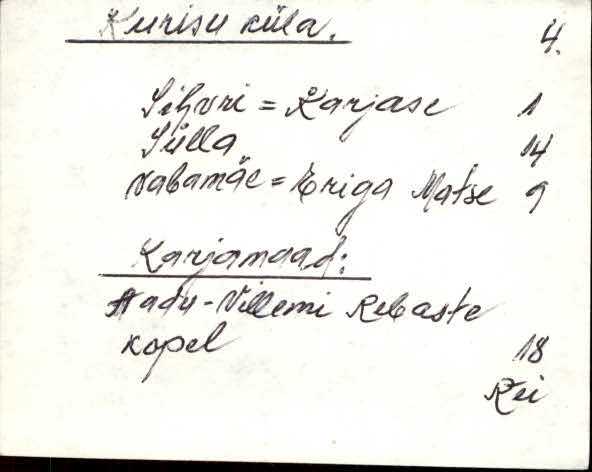 Kurisu küla. 4.
Sihvri = Karjase 1
Sülla 14
Vabamäe = Eriga Matse 9
Karjamaad:
Aadu-Villemi Rebaste
kopel 18
Rei